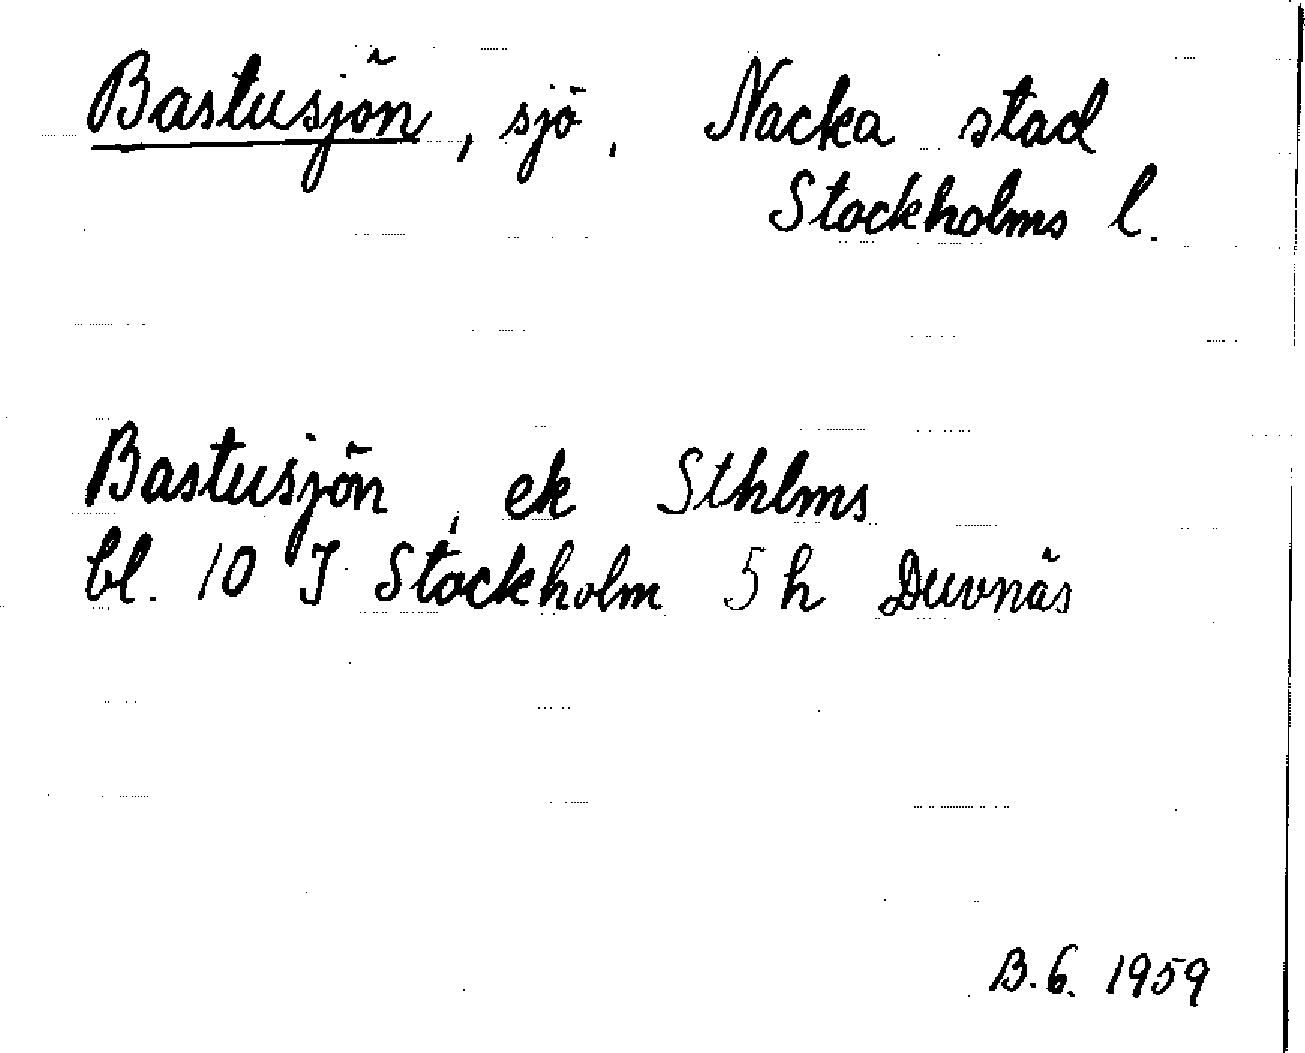 Bastusjön, sjö, Nacka stad
Stockholms l.
Bastusjön, ek Sthlms
bl. 10 J Stockholm 5h Duvnäs
B.G. 1959